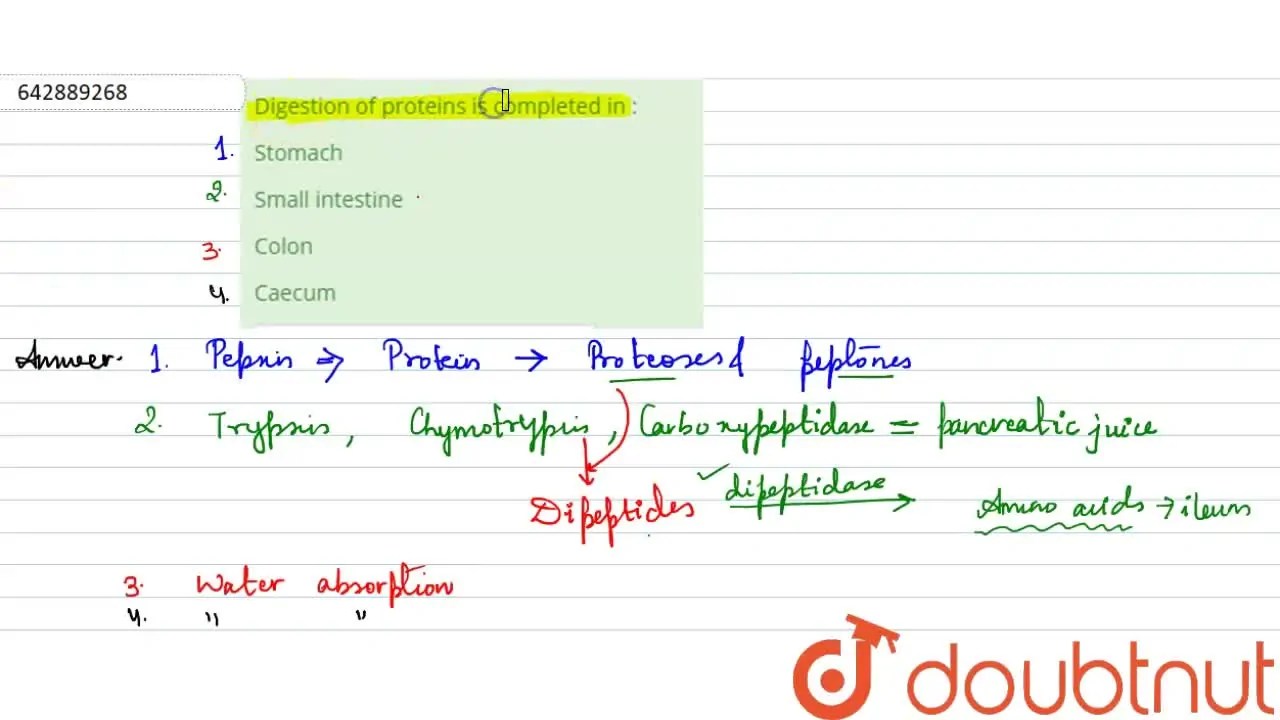 642889268
Digestion of proteins is completed in :
1. Stomach
2. Small intestine
3. Colon
4. Caecum
Answer. 1. Pepsin ⇒ Protein → Proteoses & peptones
2. Trypsin, Chymotrypsin, Carboxypeptidase = pancreatic juice
Dipeptides dipeptidase → Amino acids → ileum
3. Water absorption
4. " "
doubtnut